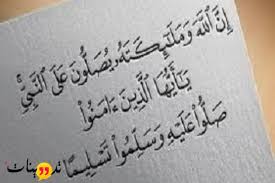 إِنَّ اللَّهَ وَمَلَٰٓئِكَتَهُۥ يُصَلُّونَ عَلَى النَّبِيِّ
يَٰٓأَيُّهَا الَّذِينَ ءَامَنُوا۟
صَلُّوا۟ عَلَيْهِ وَسَلِّمُوا۟ تَسْلِيمًا
تدوينات